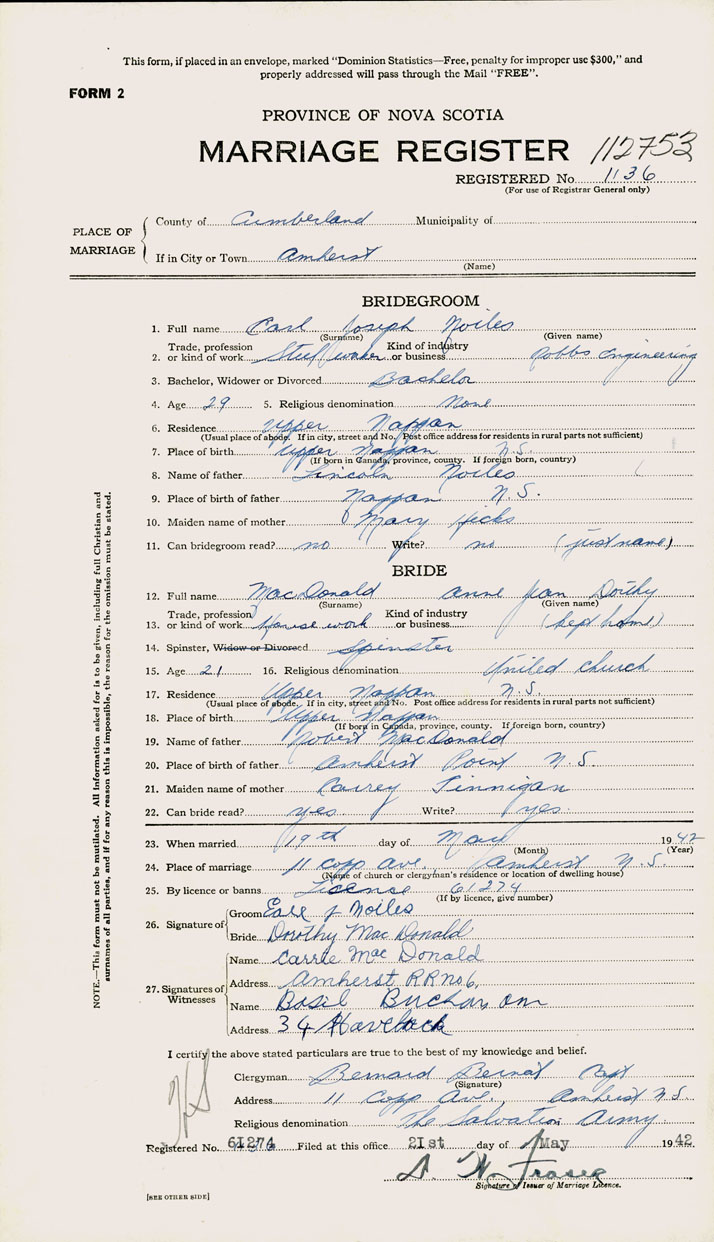 This form, if placed in an envelope, marked "Dominion Statistics—Free, penalty for improper use $300," and
properly addressed will pass through the Mail "FREE".
FORM 2
PROVINCE OF NOVA SCOTIA
MARRIAGE REGISTER 112753
REGISTERED No. 1136
(For use of Registrar General only)
PLACE OF MARRIAGE
County of Cumberland Municipality of
If in City or Town Amherst
(Name)
BRIDEGROOM
1. Full name Carl Joseph Noiles
(Surname) (Given name)
2. Trade, profession or kind of work Steel worker Kind of industry or business Robbs Engineering
3. Bachelor, Widower or Divorced Bachelor
4. Age 29 5. Religious denomination None
6. Residence Upper Nappan
(Usual place of abode. If in city, street and No. Post office address for residents in rural parts not sufficient)
7. Place of birth Upper Nappan N.S.
(If born in Canada, province, county. If foreign born, country)
8. Name of father Lincoln Noiles
9. Place of birth of father Nappan N.S.
10. Maiden name of mother Mary Hicks
11. Can bridegroom read? no Write? no (just name)
BRIDE
12. Full name MacDonald Anne Jean Dorthy
(Surname) (Given name)
13. Trade, profession or kind of work House work Kind of industry or business (kept home)
14. Spinster, Widow or Divorced Spinster
15. Age 21 16. Religious denomination United Church
17. Residence Upper Nappan N.S.
(Usual place of abode. If in city, street and No. Post office address for residents in rural parts not sufficient)
18. Place of birth Upper Nappan
(If born in Canada, province, county. If foreign born, country)
19. Name of father Robert MacDonald
20. Place of birth of father Amherst Point N.S.
21. Maiden name of mother Finnigan
22. Can bride read? yes Write? yes.
23. When married 19th day of May 1942
(Month) (Year)
24. Place of marriage 11 Copp Ave. Amherst N.S.
(Name of church or clergyman's residence or location of dwelling house)
25. By licence or banns Licence 61274
(If by licence, give number)
26. Signature of
Groom Earl J Noiles
Bride Dorothy Mac Donald
27. Signatures of Witnesses
Name Carrie Mac Donald
Address Amherst RR no 6.
Name Basil Buchanan
Address 34 Havelock
I certify the above stated particulars are true to the best of my knowledge and belief.
Clergyman Bernard Bernat Capt
(Signature)
Address 11 Copp Ave. Amherst N.S.
Religious denomination The Salvation Army.
Registered No. 61274 Filed at this office 21st day of May 1942
Signature of Issuer of Marriage Licence.
[SEE OTHER SIDE]
NOTE.—This form must not be mutilated. All information asked for is to be given, including full Christian and
surnames of all parties, and if for any reason this is impossible, the reason for the omission must be stated.